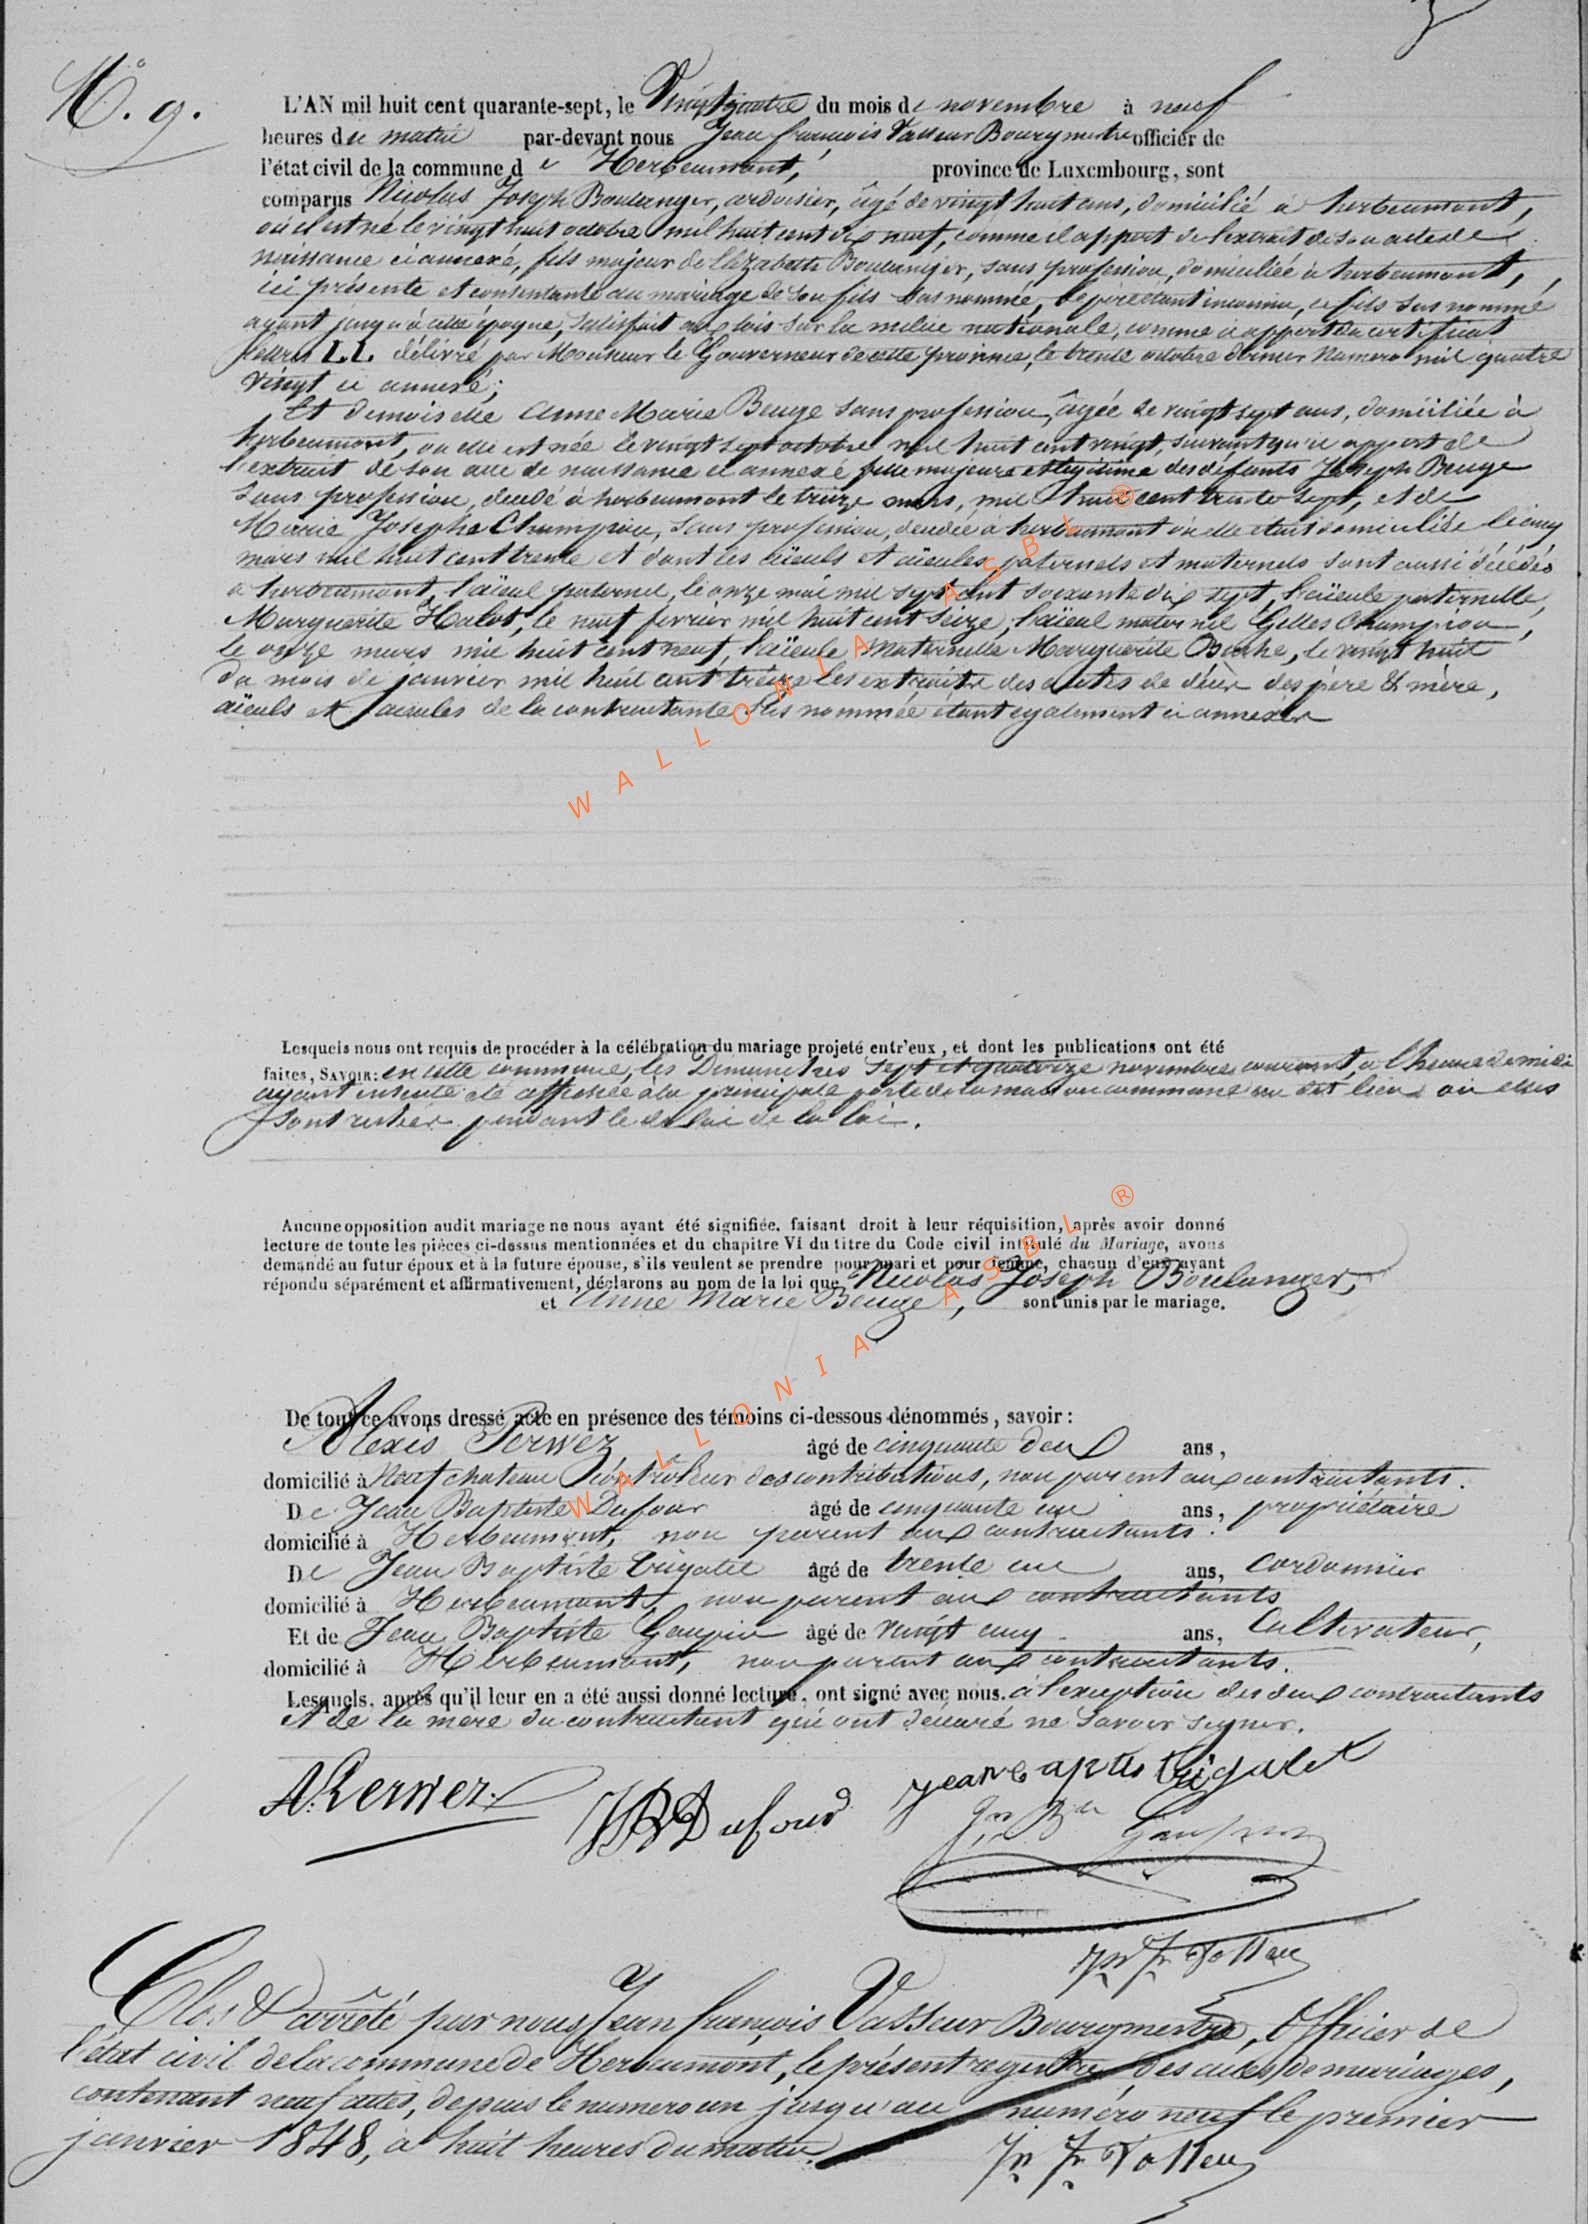 N° 9.
L'AN mil huit cent quarante-sept, le Vingt quatre du mois de novembre à neuf
heures du matin par-devant nous Jean françois Vasseur Bourgmestre officier de
l'état civil de la commune de Herbeumont, province de Luxembourg, sont
comparus Nicolas Joseph Boulanger, ardoisier, âgé de vingt huit ans, domicilié à herbeumont,
où il est né le vingt huit octobre mil huit cent dix neuf, comme il appert de l'extrait de son acte de
naissance ci annexé, fils majeur de Elizabeth Boulanger, sans profession, domiciliée à herbeumont,
ici présente et consentante au mariage de son fils sus nommé, le père étant inconnu, ce fils sus nommé
ayant jusqu'à cette époque, satisfait aux lois sur la milice nationale, comme il appert du certificat
L.L. délivré par Monsieur le Gouverneur de cette province, le trente octobre dernier numero mil quatre
vingt ci annexé;
Et demoiselle Anne Marie Beuge sans profession, âgée de vingt sept ans, domiciliée à
herbeumont, où elle est née le vingt sept octobre mil huit cent vingt, suivant qu'il appert de
l'extrait de son acte de naissance ci annexé fille majeure et légitime des défunts Joseph Beuge
sans profession, décédé à herbeumont le treize mars, mil huit cent trente sept, et de
Marie Josephe Champion, sans profession, décédée à herbeumont où elle était domiciliée le cinq
mars mil huit cent trente et dont les aïeuls et aïeules paternels et maternels sont aussi décédés
à herbeumont, l'aïeul paternel, le onze mai mil sept cent soixante dix sept, l'aïeule paternelle,
Marguerite Halot, le neuf février mil huit cent seize, l'aïeul maternel Gilles Champion,
le onze mars mil huit cent neuf, l'aïeule Maternelle Marguérite, le vingt huit
du mois de janvier mil huit cent treize les extraits des actes de décès des père & mère,
aïeuls et aïeules de la contractante sus nommée étant egalement ci annexés
Lesquels nous ont requis de procéder à la célébration du mariage projeté entr'eux, et dont les publications ont été
faites, SAVOIR: en cette commune, les Dimanches sept et quatorze novembre courant, à l'heure de midi
ayant ensuite été affichée à la principale porte de la maison commune au dit lieu où elles
sont restées pendant le délai de la loi.
Aucune opposition audit mariage ne nous ayant été signifiée, faisant droit à leur réquisition, après avoir donné
lecture de toute les pièces ci-dessus mentionnées et du chapitre VI du titre du Code civil intitulé du Mariage, avons
demandé au futur époux et à la future épouse, s'ils veulent se prendre pour mari et pour femme, chacun d'eux ayant
répondu séparément et affirmativement, déclarons au nom de la loi que Nicolas Joseph Boulanger,
et Anne Marie Beuge, sont unis par le mariage.
De tout ce avons dressé acte en présence des témoins ci-dessous dénommés, savoir:
Alexis Perwez âgé de cinquante deux ans,
domicilié à Neufchateau Contrôleur des contributions, non parent aux contractants.
De Jean Baptiste Dufour âgé de cinquante un ans, propriétaire
domicilié à Herbeumont, non parent aux contractants.
De Jean Baptiste Trigalet âgé de trente un ans, Cordonnier
domicilié à Herbeumont, non parent aux contractants
Et de Jean Baptiste Gaupin âgé de vingt cinq ans, Cultivateur,
domicilié à Herbeumont, non parent aux contractants.
Lesquels, après qu'il leur en a été aussi donné lecture, ont signé avec nous. à l'exception des deux contractants
et de la mère du contractant qui ont déclaré ne savoir signer.
A. Perwez
JB Dufour
jean baptis trigalet
Jn Bte Gaupin
Jn Fr Vasseur
Clos & arrêté par nous Jean françois Vasseur Bourgmestre, Officier de
l'état civil de la commune de Herbeumont, le présent registre des actes de mariages,
contenant neuf actes, depuis le numero un jusqu'au numéro neuf le premier
janvier 1848, à huit heures du matin.
Jn Fr Vasseur
WALLONIA ASBL ®
WALLONIA ASBL ®